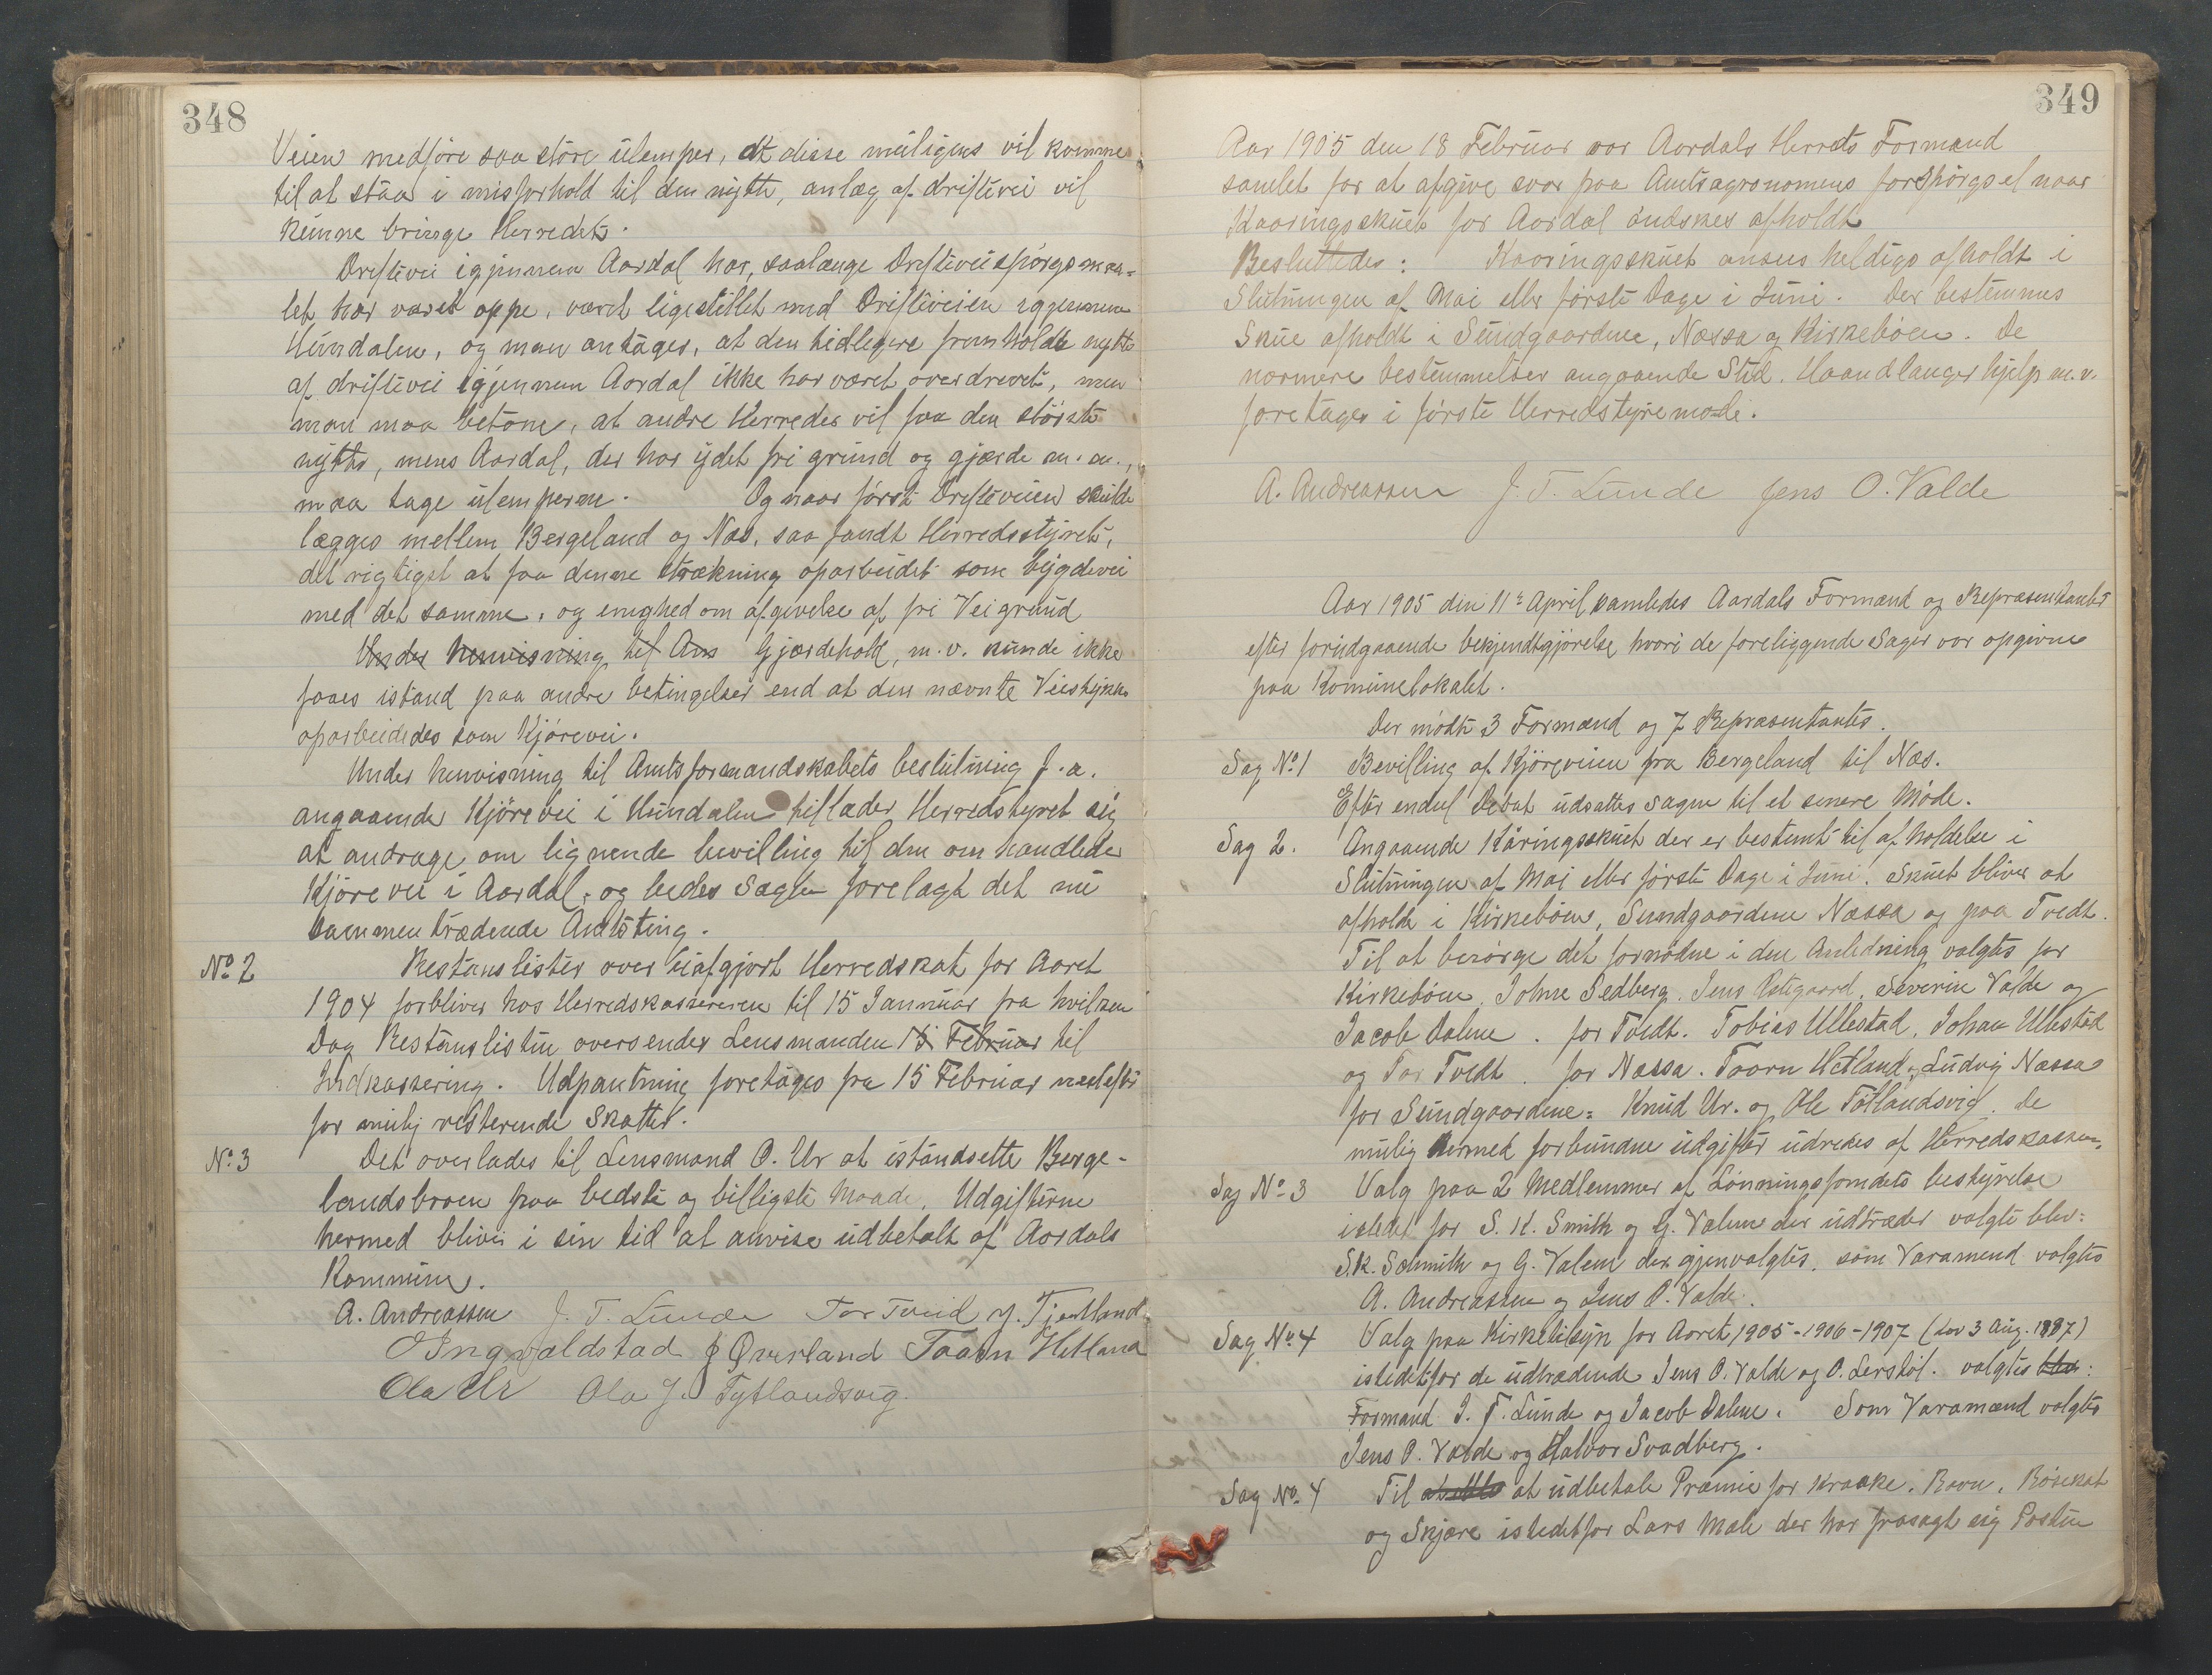 348
Veien medføre saa store ulemper, at disse muligens vil komme
til at staa i misforhold til den nytte, anlæg af driftevei vil
kunne bringe Herredet.
Driftevei igjennem Aardal har, saalænge Drifteveispørgsmaa-
let har været oppe, været ligestillet med Drifteveien iggjennem
Hundalen, og man antager, at den tidligere fremholdte nytte
af driftevei igjennem Aardal ikke har været overdrevet, men
man maa betone, at andre Herreder vil faa den største
nytte, mens Aardal, der har ydet fri grund og gjærde m.m.,
maa tage ulemperne. Og naar først Drifteveien skulde
lægges mellem Bergeland og Næs, saa fandt Herredsstyret,
det rigtigst at faa denne strækning oparbeidet som bygdevei
med det samme, og enighed om afgivelse af fri Veigrund
Under henvisning til Am Gjærdehold, m.v. kunde ikke
faaes istand paa andre betingelser end at den nævnte Veistykke
oparbeidedes som Kjørevei.
Under henvisning til Amtsformandskabets beslutning f.a.
angaaende Kjørevei i Hundalen tillader Herredstyret sig
at andrage om lignende bevilling til den omhandlede
Kjørevei i Aardal, og bedes Sagen forelagt det nu
sammentrædende Amtsting.
No 2 Restanslister over uafgjort Herredskat for Aaret
1904 forbliver hos Herredskassereren til 15 Januar fra hvilken
Dag Restanslisten oversendes Lensmanden 15 Februar til
Indkassering. Udpantning foretages fra 15 Februar næstefter
for mulig resterende Skatter.
No 3 Det overlades til Lensmand O. Ur at istandsette Berge-
landsbroen paa bedste og billigste Maade. Udgifterne
hermed bliver i sin tid at anvise udbetalt af Aardals
Kommune.
A. Andreassen J. T. Lunde Tor Tveid M. Tjentland
O Ingvaldstad J Øverland Taarn Hetland
Ola Ur Ola J. Tytlandsvig.
349
Aar 1905 den 18 Februar var Aardals Herreds Formænd
samlet for at afgive svar paa Amtsagronomens forspørgsel naar
Kaaringsskuet for Aardal øndskes afholdt
Besluttedes: Kaaringsskuet ansees heldigs afholdt i
Slutningen af Mai eller første Dage i Juni. Der bestemmes
Skue afholdt i Sundgaardene, Næssa og Kirkebøen. De
nærmere bestemmelser angaaende Sted. Haandlanger hjelp m.v.
foretages i første Herredstyremøde.
A. Andreassen J. T. Lunde Jens O. Valde
Aar 1905 din 11te April samledes Aardals Formænd og Repræsentanter
efter forudgaaende bekjendtgjørelse hvori de foreliggende Sager var opgivne
paa Komunelokalet.
Der mødte 3 Formænd og 7 Repræsentanter.
Sag No 1 Bevilling af Kjøreveien fra Bergeland til Næs.
Efter endel Debat udsattes sagen til et senere Møde.
Sag 2. Angaaende Kåringsskuet der er bestemt til afholdelse i
Slutningen af Mai eller første Dage i Juni. Skuet bliver at
afholde i Kirkebøen, Sundgaardene Næssa og paa Tvedt.
Til at besørge det fornødne i den Anledning valgtes for
Kirkebøen, Johne Sedberg, Jens Østigaard, Severin Valde og
Jacob Dalene. for Tvedt. Tobias Ullestad, Johan Ullestad
og Tor Tvedt. for Næssa. Toorn Hetland og Ludvig Næssa
for Sundgaardene: Knud Ur. og Ole Tøtlandsvig. De
mulig hermed forbundne udgifter udredes af Herredskassen.
Sag No 3 Valg paa 2 Medlemmer af Lønningsfondets bestyrelse
istedet for S. K. Smith og G. Valene der udtræder valgte blev:
S.K. Schmith og G. Valene der gjenvalgtes. som Varamend valgtes
A. Andreassen og Jens O. Valde.
Sag No 4 Valg paa Kirketilsyn for Aaret 1905-1906-1907 (Lov 3 Aug. 1897)
istedetfor de udtrædende Jens O. Valde og O. Lerstøl. valgtes blev:
Formand J. T. Lunde og Jacob Dalene. Som Varamænd valgtes
Jens O. Valde og Halvor Svadberg.
Sag No. 4 Til at udbetale Præmie for Kraake. Ravn, Røiskat
og Skjære istedetfor Lars Mæle der har frasagt sig Posten